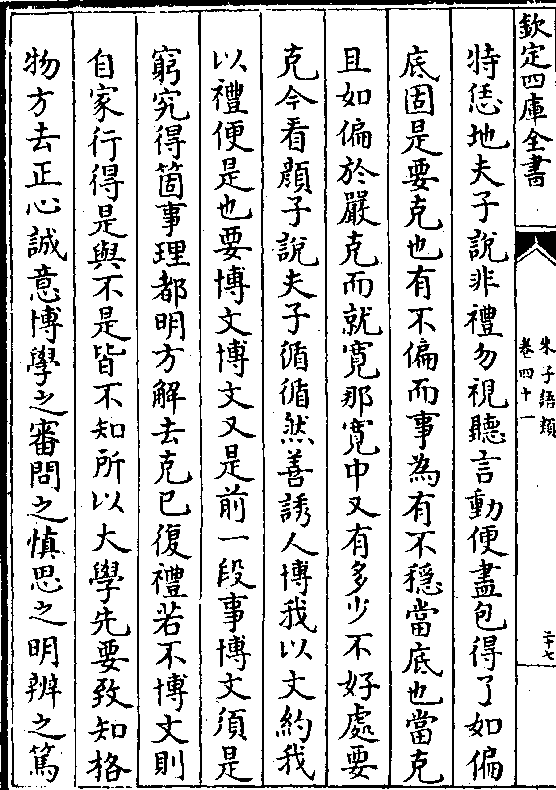 欽定四庫全書
朱子語類
卷四十一
二十七
特恁地夫子說非禮勿視聽言動便盡包得了如偏
底固是要克也有不偏而事為有不穩當底也當克
且如偏於嚴克而就寛那寛中又有多少不好處要
克今看顔子說夫子循循然善誘人博我以文約我
以禮便是也要博文博文又是前一段事博文須是
窮究得箇事理都明方解去克已復禮若不博文則
自家行得是與不是皆不知所以大學先要致知格
物方去正心誠意博學之審問之慎思之明辨之篤